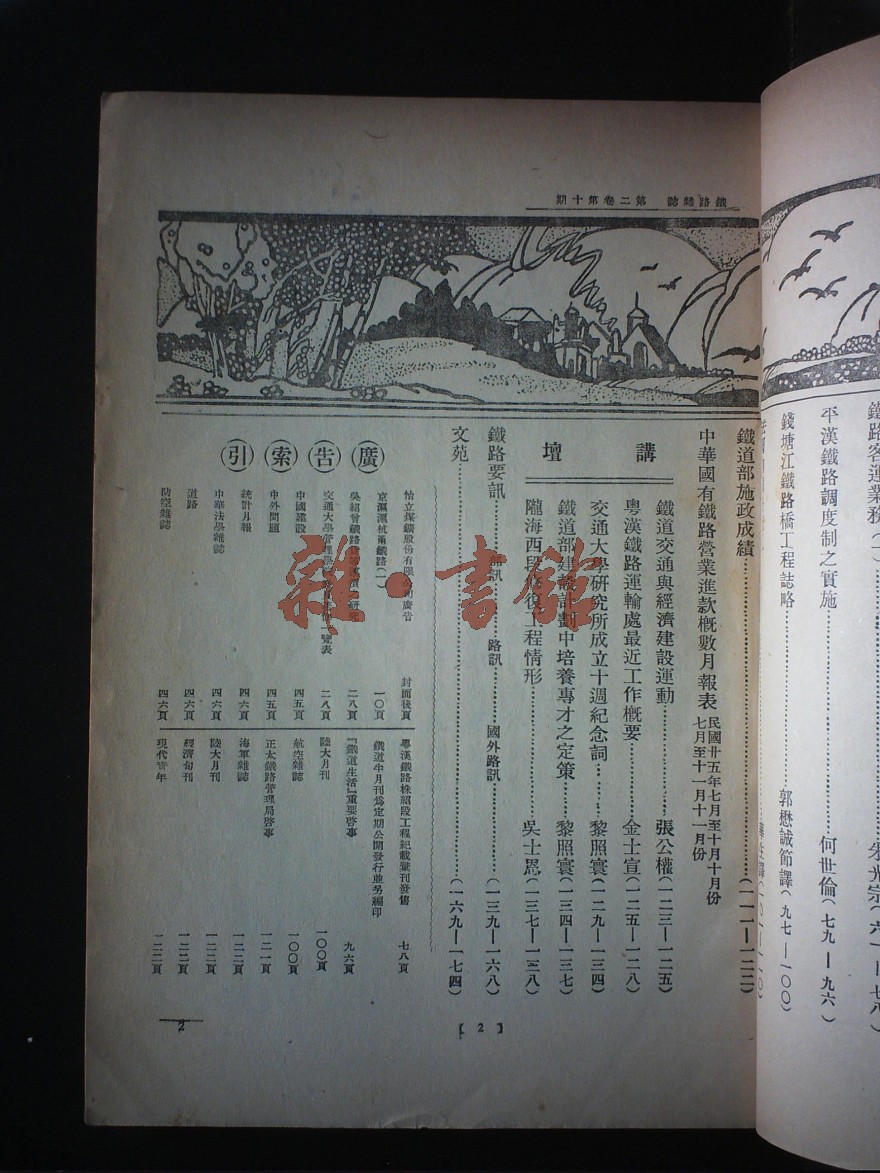 鐵路雜誌 第二卷第十期
鐵路客運業務(一)
平漢鐵路調度制之實施……何世倫(七九—九六)
錢塘江鐵路橋工程誌略……郭懋誠節譯(九七—一〇〇)
鐵道部施政成績……(一一一—一二二)
中華國有鐵路營業進款概數月報表 民國廿五年七月至十月十月份
七月至十一月十一月份
講壇
鐵道交通與經濟建設運動……張公權(一二三—一二五)
粵漢鐵路運輸處最近工作概要……金士宣(一二五—一二八)
交通大學研究所成立十週紀念詞……黎照寰(一二九—一三四)
鐵道部建設計劃中培養專才之定策……黎照寰(一三四—一三七)
隴海西段修復工程情形……吳士恩(一三七—一三八)
鐵路要訊……部訊……路訊……國外路訊……(一三九—一六八)
文苑……(一六九—一七四)
廣告索引
怡立煤鑛股份有限公司廣告 封面後頁
京滬滬杭甬鐵路(一) 一〇頁
吳紹曾鐵路 二八頁
交通大學管理學 一覽表 二八頁
中國建設 四五頁
中外問題 四五頁
統計月報 四六頁
中華法學雜誌 四六頁
道路 四六頁
防空雜誌 四六頁
粵漢鐵路株韶段工程紀載彙刊發售 七八頁
鐵道半月刊為定期公開發行並另編印
『鐵道生活』重要啓事 九六頁
陸大月刊 一〇〇頁
航空雜誌 一〇〇頁
正太鐵路管理局啓事 一二一頁
海軍雜誌 一二二頁
陸大月刊 一二二頁
經濟旬刊 一二二頁
現代青年 一二二頁
2
【2】
雜·書館